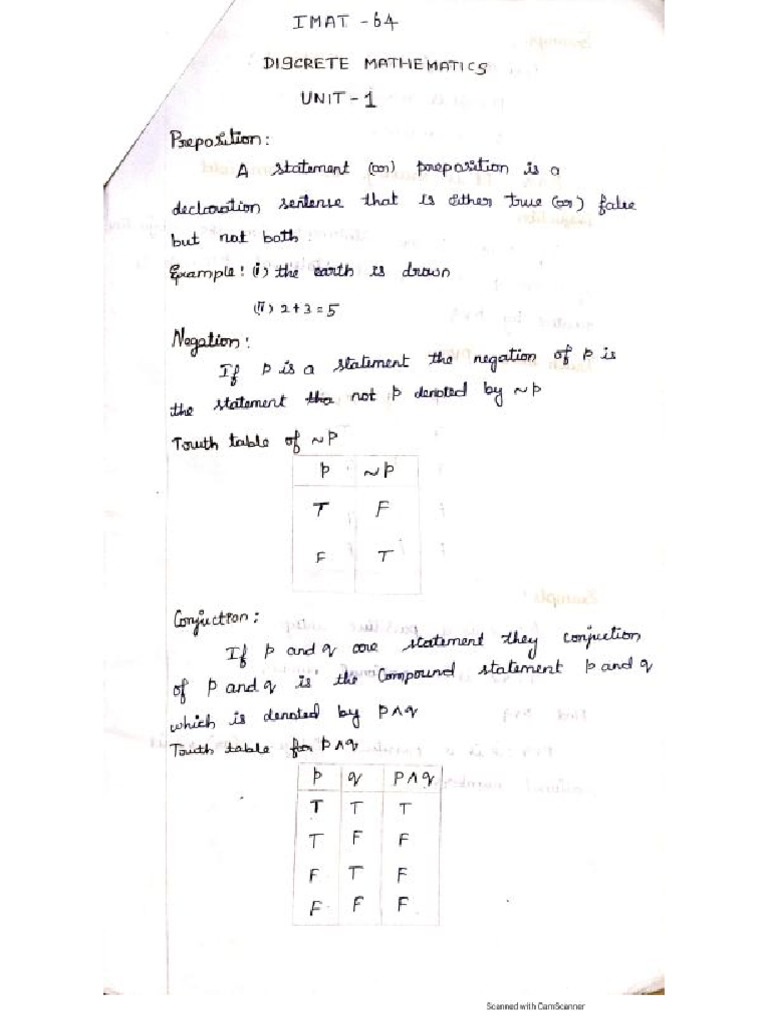 IMAT - 64
DISCRETE MATHEMATICS
UNIT - 1
Preposition:
A statement (or) preposition is a
declaration sentence that is either true (or) false
but not both.
Example: (i) the earth is drown
(ii) 2+3=5
Negation:
If p is a statement the negation of p is
the statement the not p denoted by ~p
Truth table of ~p
p ~p
T F
F T
Conjuction:
If p and q are statement they conjuction
of p and q is the compound statement p and q
which is denoted by p∧q
Truth table for p∧q
p q p∧q
T T T
T F F
F T F
F F F
Scanned with CamScanner